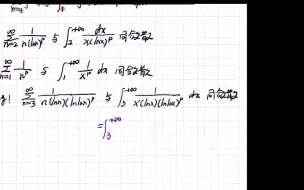 ∞ Σ n=2 1/(n(lnn)^p) 与 ∫_2^{+∞} dx/(x(lnx)^p) 同敛散
∞ Σ n=1 1/n^p 与 ∫_1^{+∞} 1/x^p dx 同敛散
! ∞ Σ n=3 1/(n(lnn)(lnlnn)^p) 与 ∫_3^{+∞} 1/(x(lnx)(lnlnx)^p) dx 同敛散
=∫_3^{+∞}